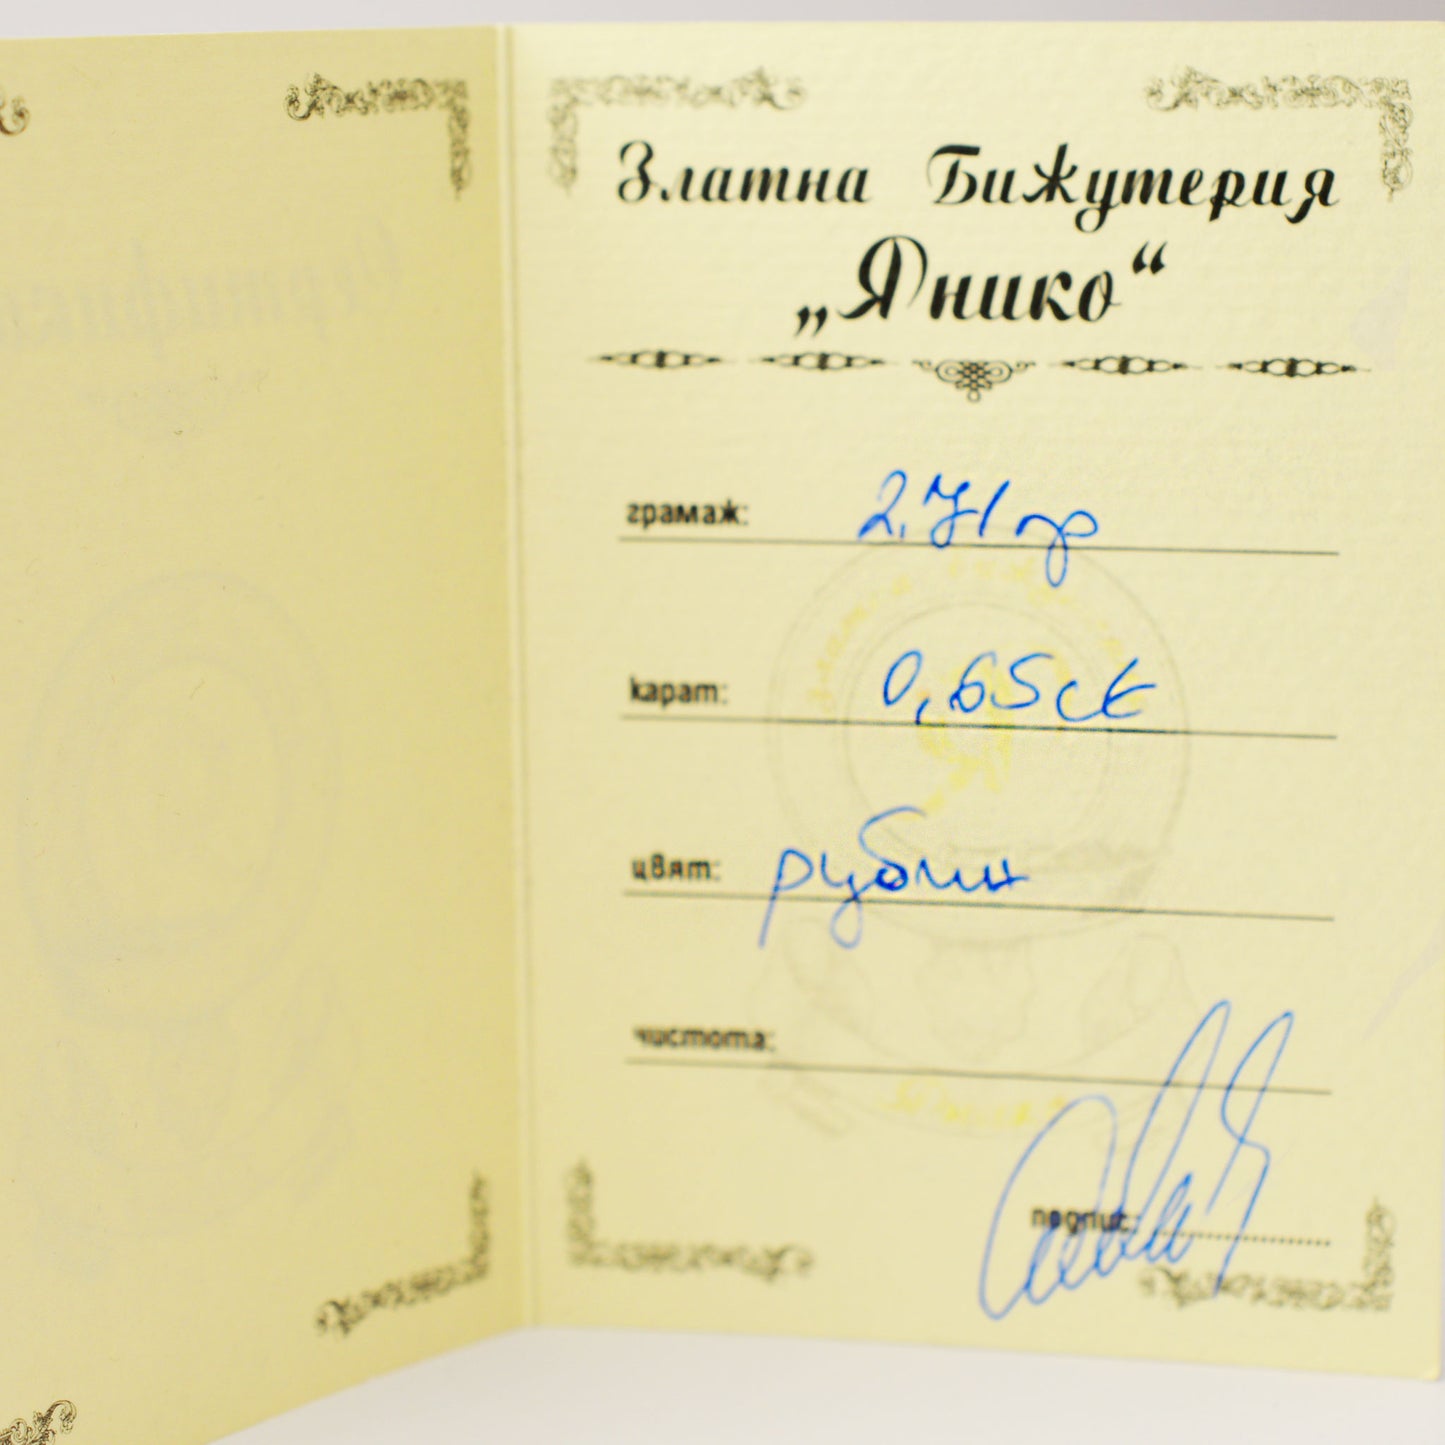 Златна Бижутерия
„Янико“
грамаж: 2.71гр
карат: 0,65ct
цвят: рубин
чистота:
подпис: